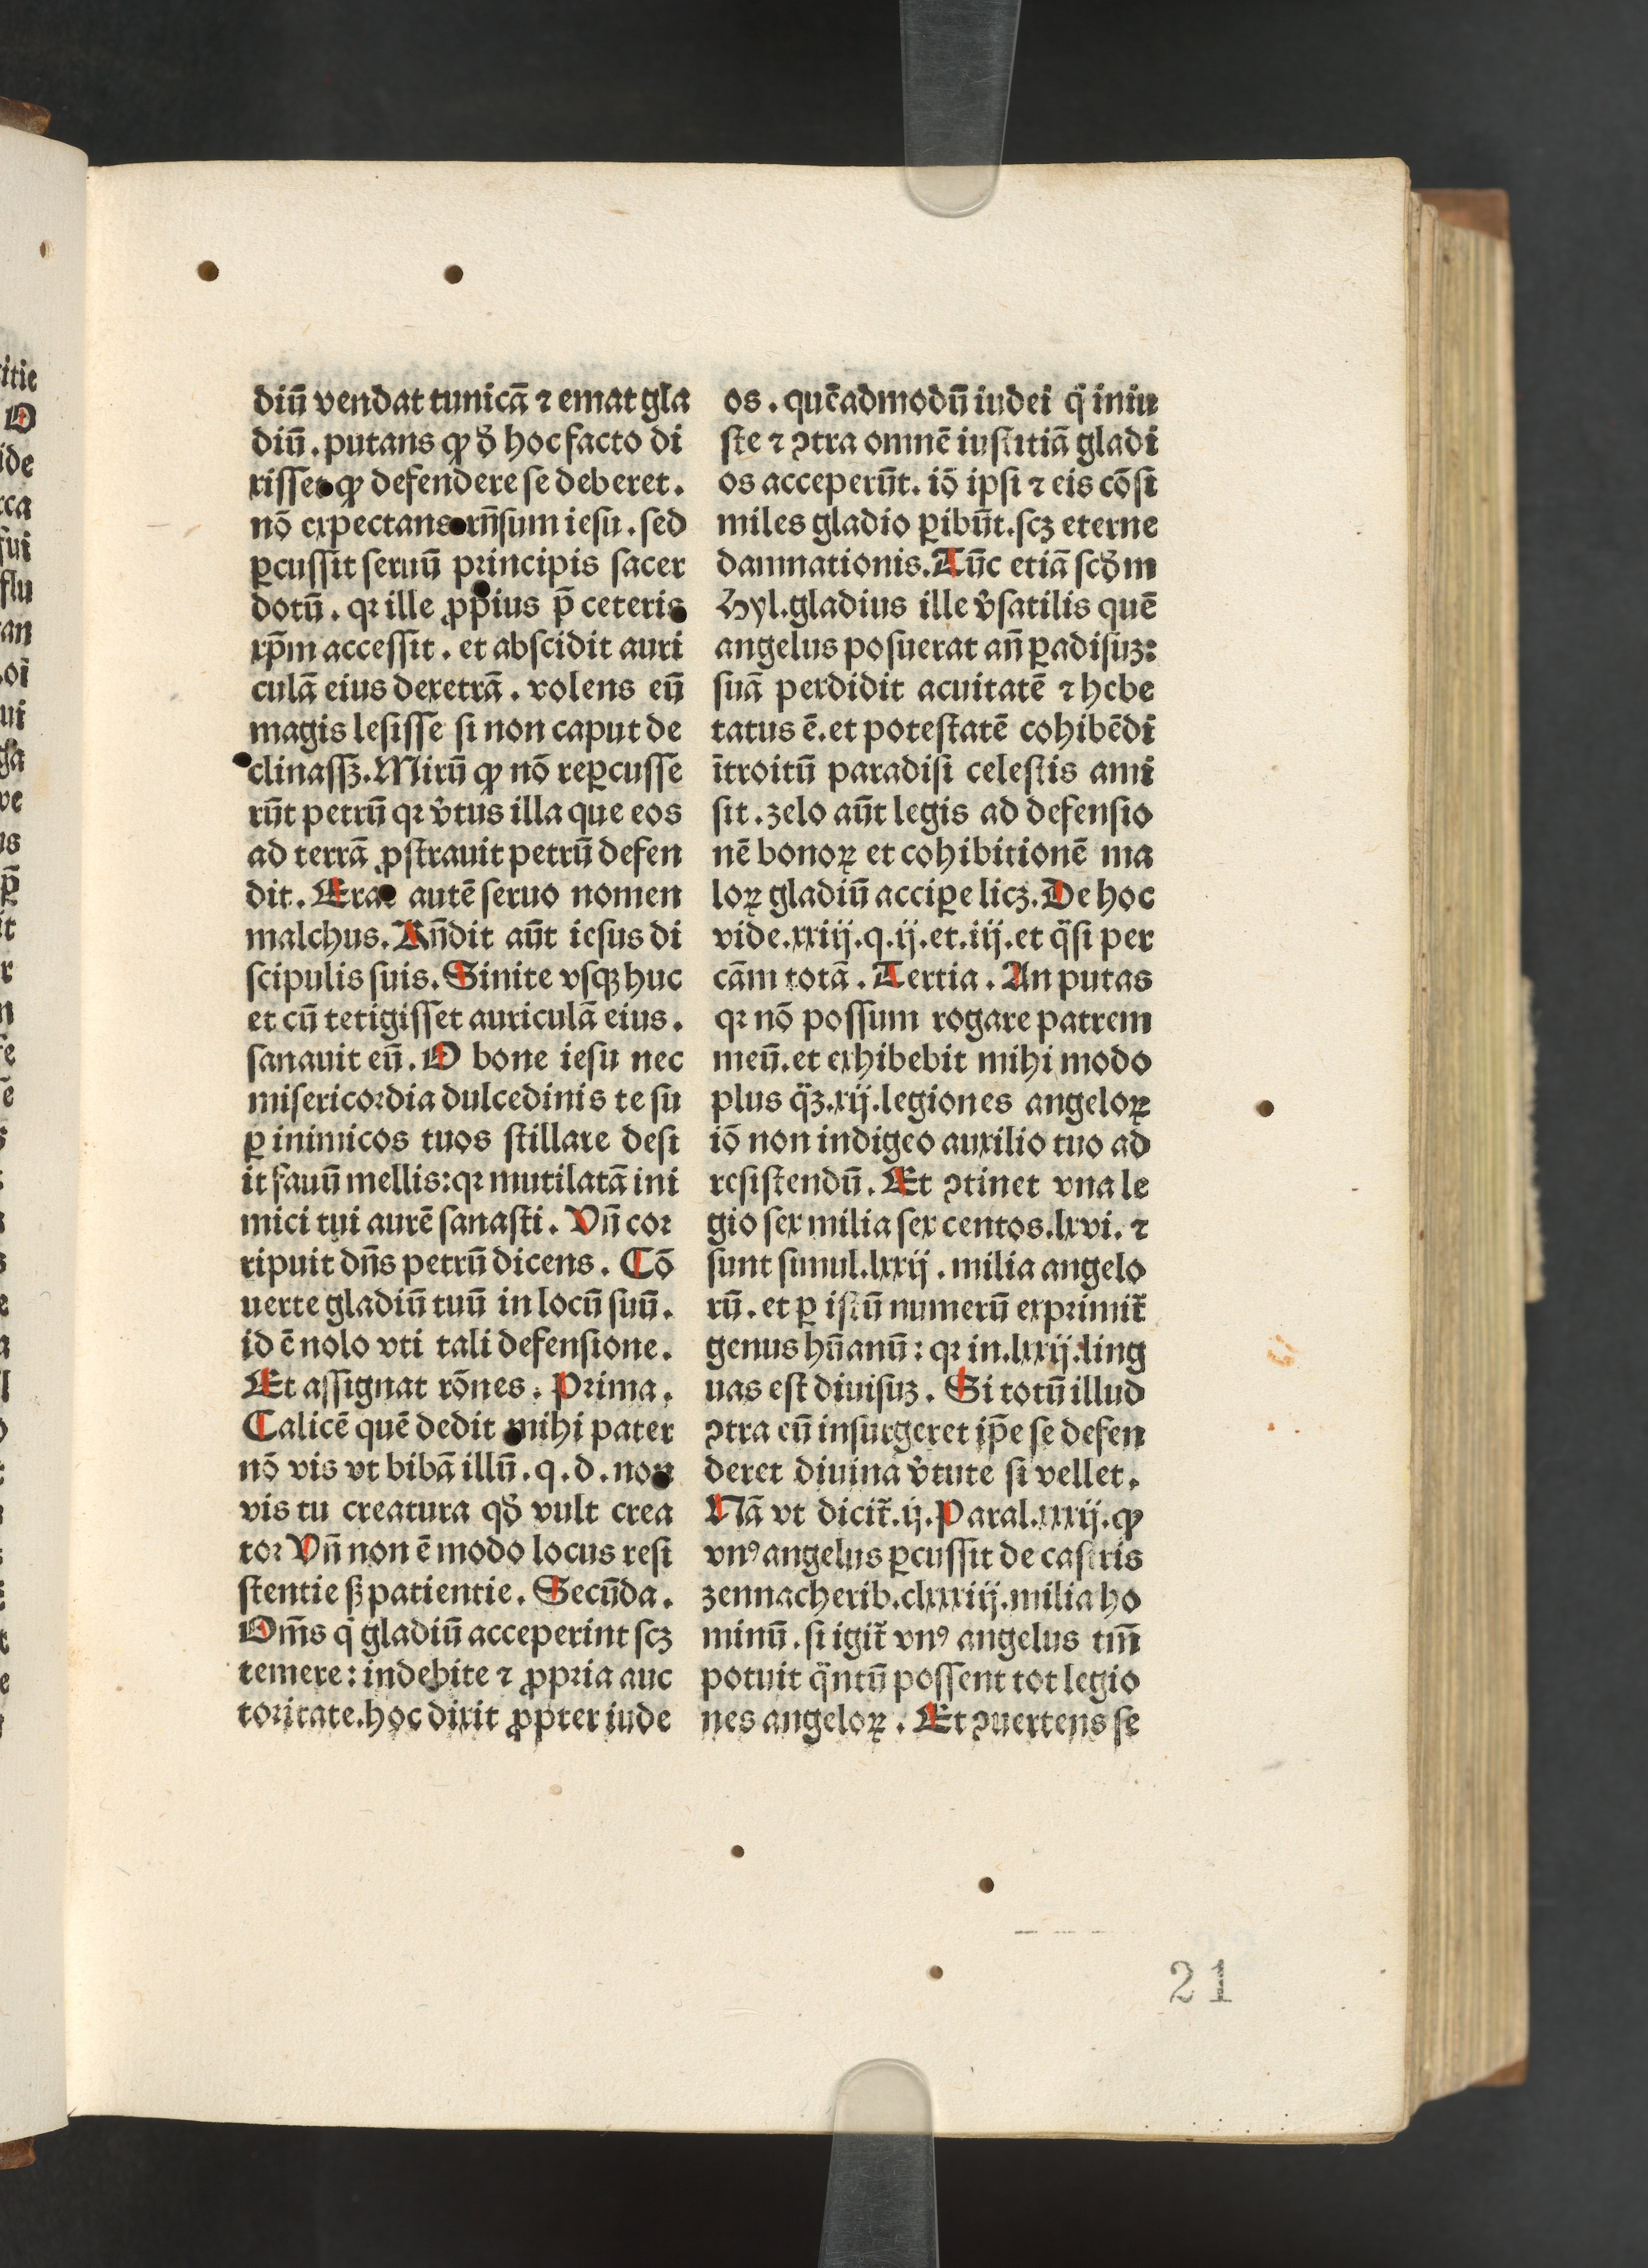 diū vendat tunicā ⁊ emat gla
diū . putans ꝙ ꝺ̄ hoc facto di
xisset ꝙ defendere se deberet .
nō expectans rn̄sum iesu . sed
ꝑcussit seruū principis sacer
dotū . qꝛ ille ꝓpius p̄ ceteris
xp̄m accessit . et abscidit auri
culā eius dexetrā . volens eū
magis lesisse si non caput de
clinassꝫ. Mirū ꝙ nō reꝑcusse
rūt petrū qꝛ v̄tus illa que eos
ad terrā ꝓstrauit petrū defen
dit . Erat autē seruo nomen
malchus. Rn̄dit aūt iesus di
scipulis suis. Sinite vsqꝫ huc
et cū tetigisset auriculā eius .
sanauit eū . O bone iesu nec
misericordia dulcedinis te su
ꝑ inimicos tuos stillare desi
it fauū mellis: qꝛ mutilatā ini
mici tui aurē sanasti . Vn̄ cor
ripuit dn̄s petrū dicens . Cō
uerte gladiū tuū in locū suū .
id ē nolo vti tali defensione .
Et assignat rōnes . Prima .
Calicē quē dedit mihi pater
nō vis vt bibā illū . q . d . non
vis tu creatura qꝺ̄ vult crea
tor Vn̄ non ē modo locus resi
stentie sꝫ patientie . Secūda .
Om̄s q̇ gladiū acceperint scꝫ
temere : indebite ⁊ ꝓpria auc
toritate. hoc dixit ꝓpter iude
os . quēadmodū iudei q̇ iniu
ste ⁊ ꝯtra omnē iustitiā gladi
os acceperūt. iō ipsi ⁊ eis cōsi
miles gladio ꝑibūt. scꝫ eterne
damnationis. Tūc etiā scꝺ̄m
Hyl. gladius ille v̄satilis quē
angelus posuerat an̄ ꝑadisuꝫ:
suā perdidit acuitatē ⁊ hebe
tatus ē. et potestatē cohibēdi
ītroitū paradisi celestis ami
sit . zelo aūt legis ad defensio
nē bonoꝝ et cohibitionē ma
loꝝ gladiū acciꝑe licꝫ. De hoc
vide. xxiij. q. ij. et. iij. et q̈si per
cām totā . Tertia . An putas
qꝛ nō possum rogare patrem
meū. et exhibebit mihi modo
plus q̈ꝫ. xij. legiones angeloꝝ
iō non indigeo auxilio tuo ad
resistendū . Et ꝯtinet vna le
gio sex milia sex centos. lxvi. ⁊
sunt simul. lxxij . milia angelo
rū . et ꝑ istū numerū exprimit᷑
genus hūanū : qꝛ in. lxxij. ling
uas est diuisuꝫ . Si totū illud
ꝯtra eū insurgeret ip̄e se defen
deret diuina v̄tute si vellet .
Nā vt dicit᷑. ij. Paral. xxxij. ꝙ
vnꝰ angelus ꝑcussit de castris
zennacherib. clxxxiij. milia ho
minū . si igit᷑ vnꝰ angelus tm̄
potuit q̈ntū possent tot legio
nes angeloꝝ . Et ꝯuertens se
21